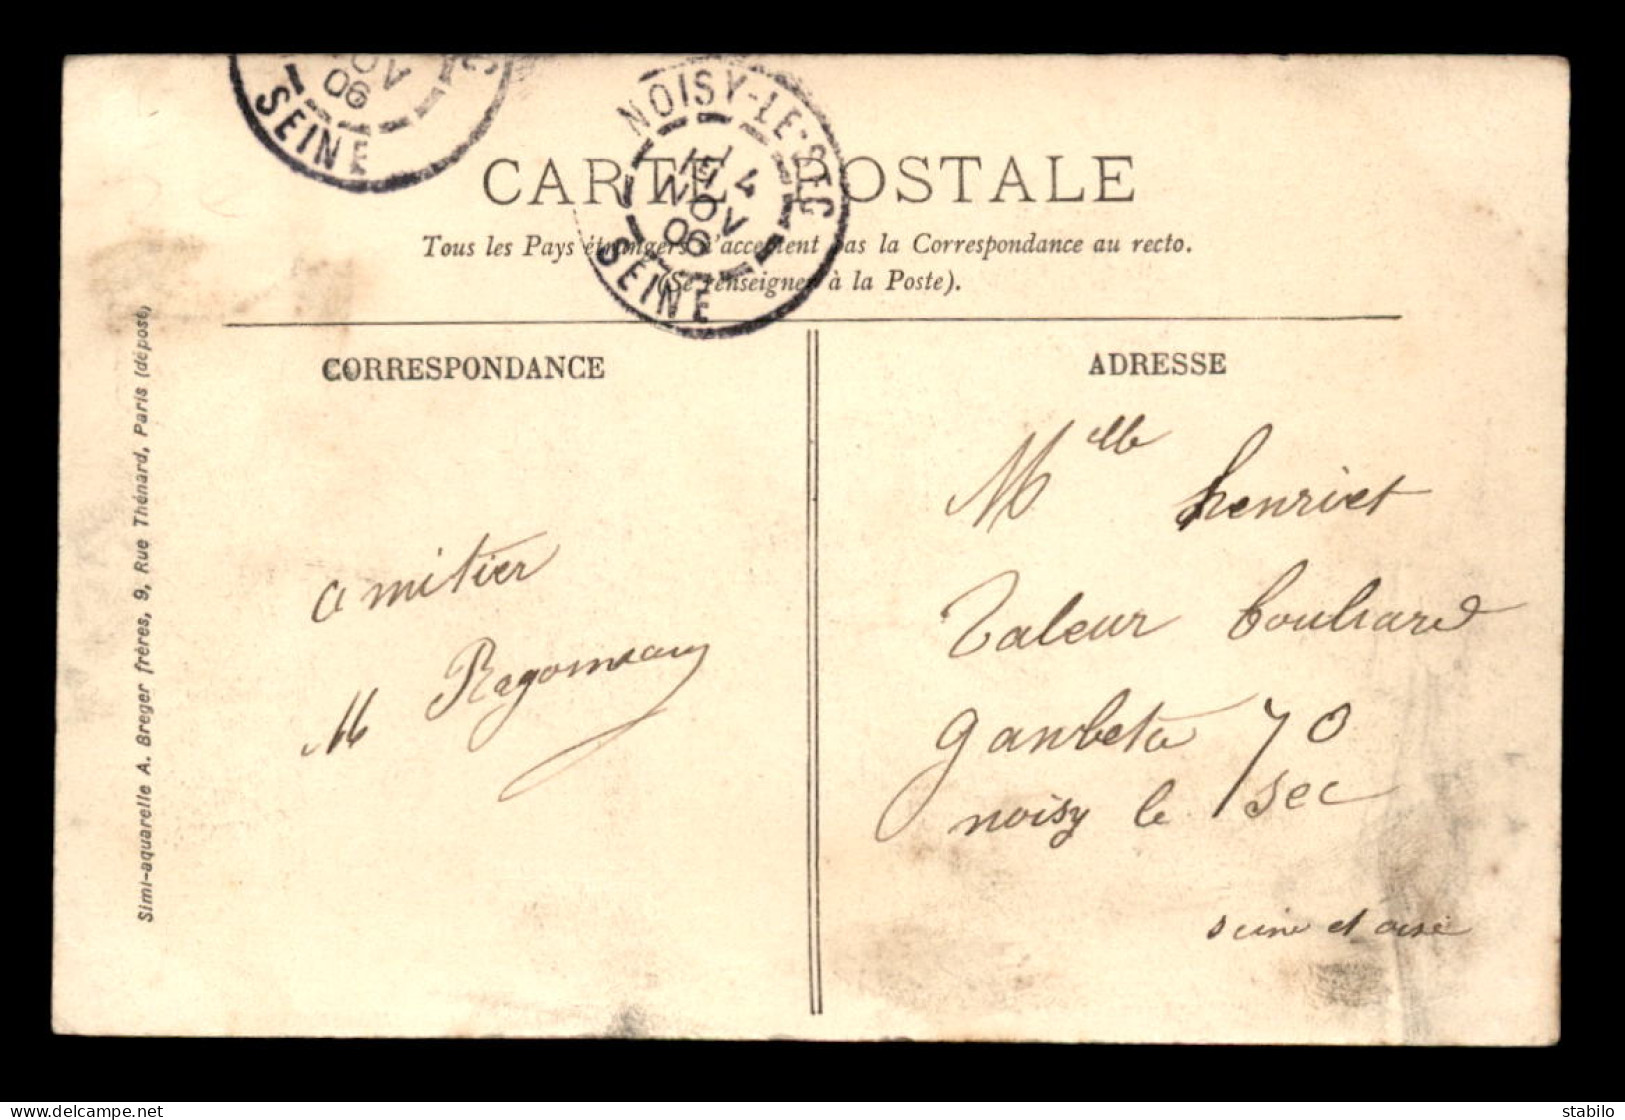 OV
06
SEINE
NOISY-LE-SEC
4
NOV
06
SEINE
CARTE POSTALE
Tous les Pays étrangers n'acceptent pas la Correspondance au recto.
(Se renseigner à la Poste).
CORRESPONDANCE
amitier
M Ragonneau
ADRESSE
Mlle henriet
Valeur boulvard
ganbeta 70
noisy le sec
seine et oise
Simi-aquarelle A. Breger frères, 9, Rue Thénard, Paris (déposé)
delcampe.net
stabilo